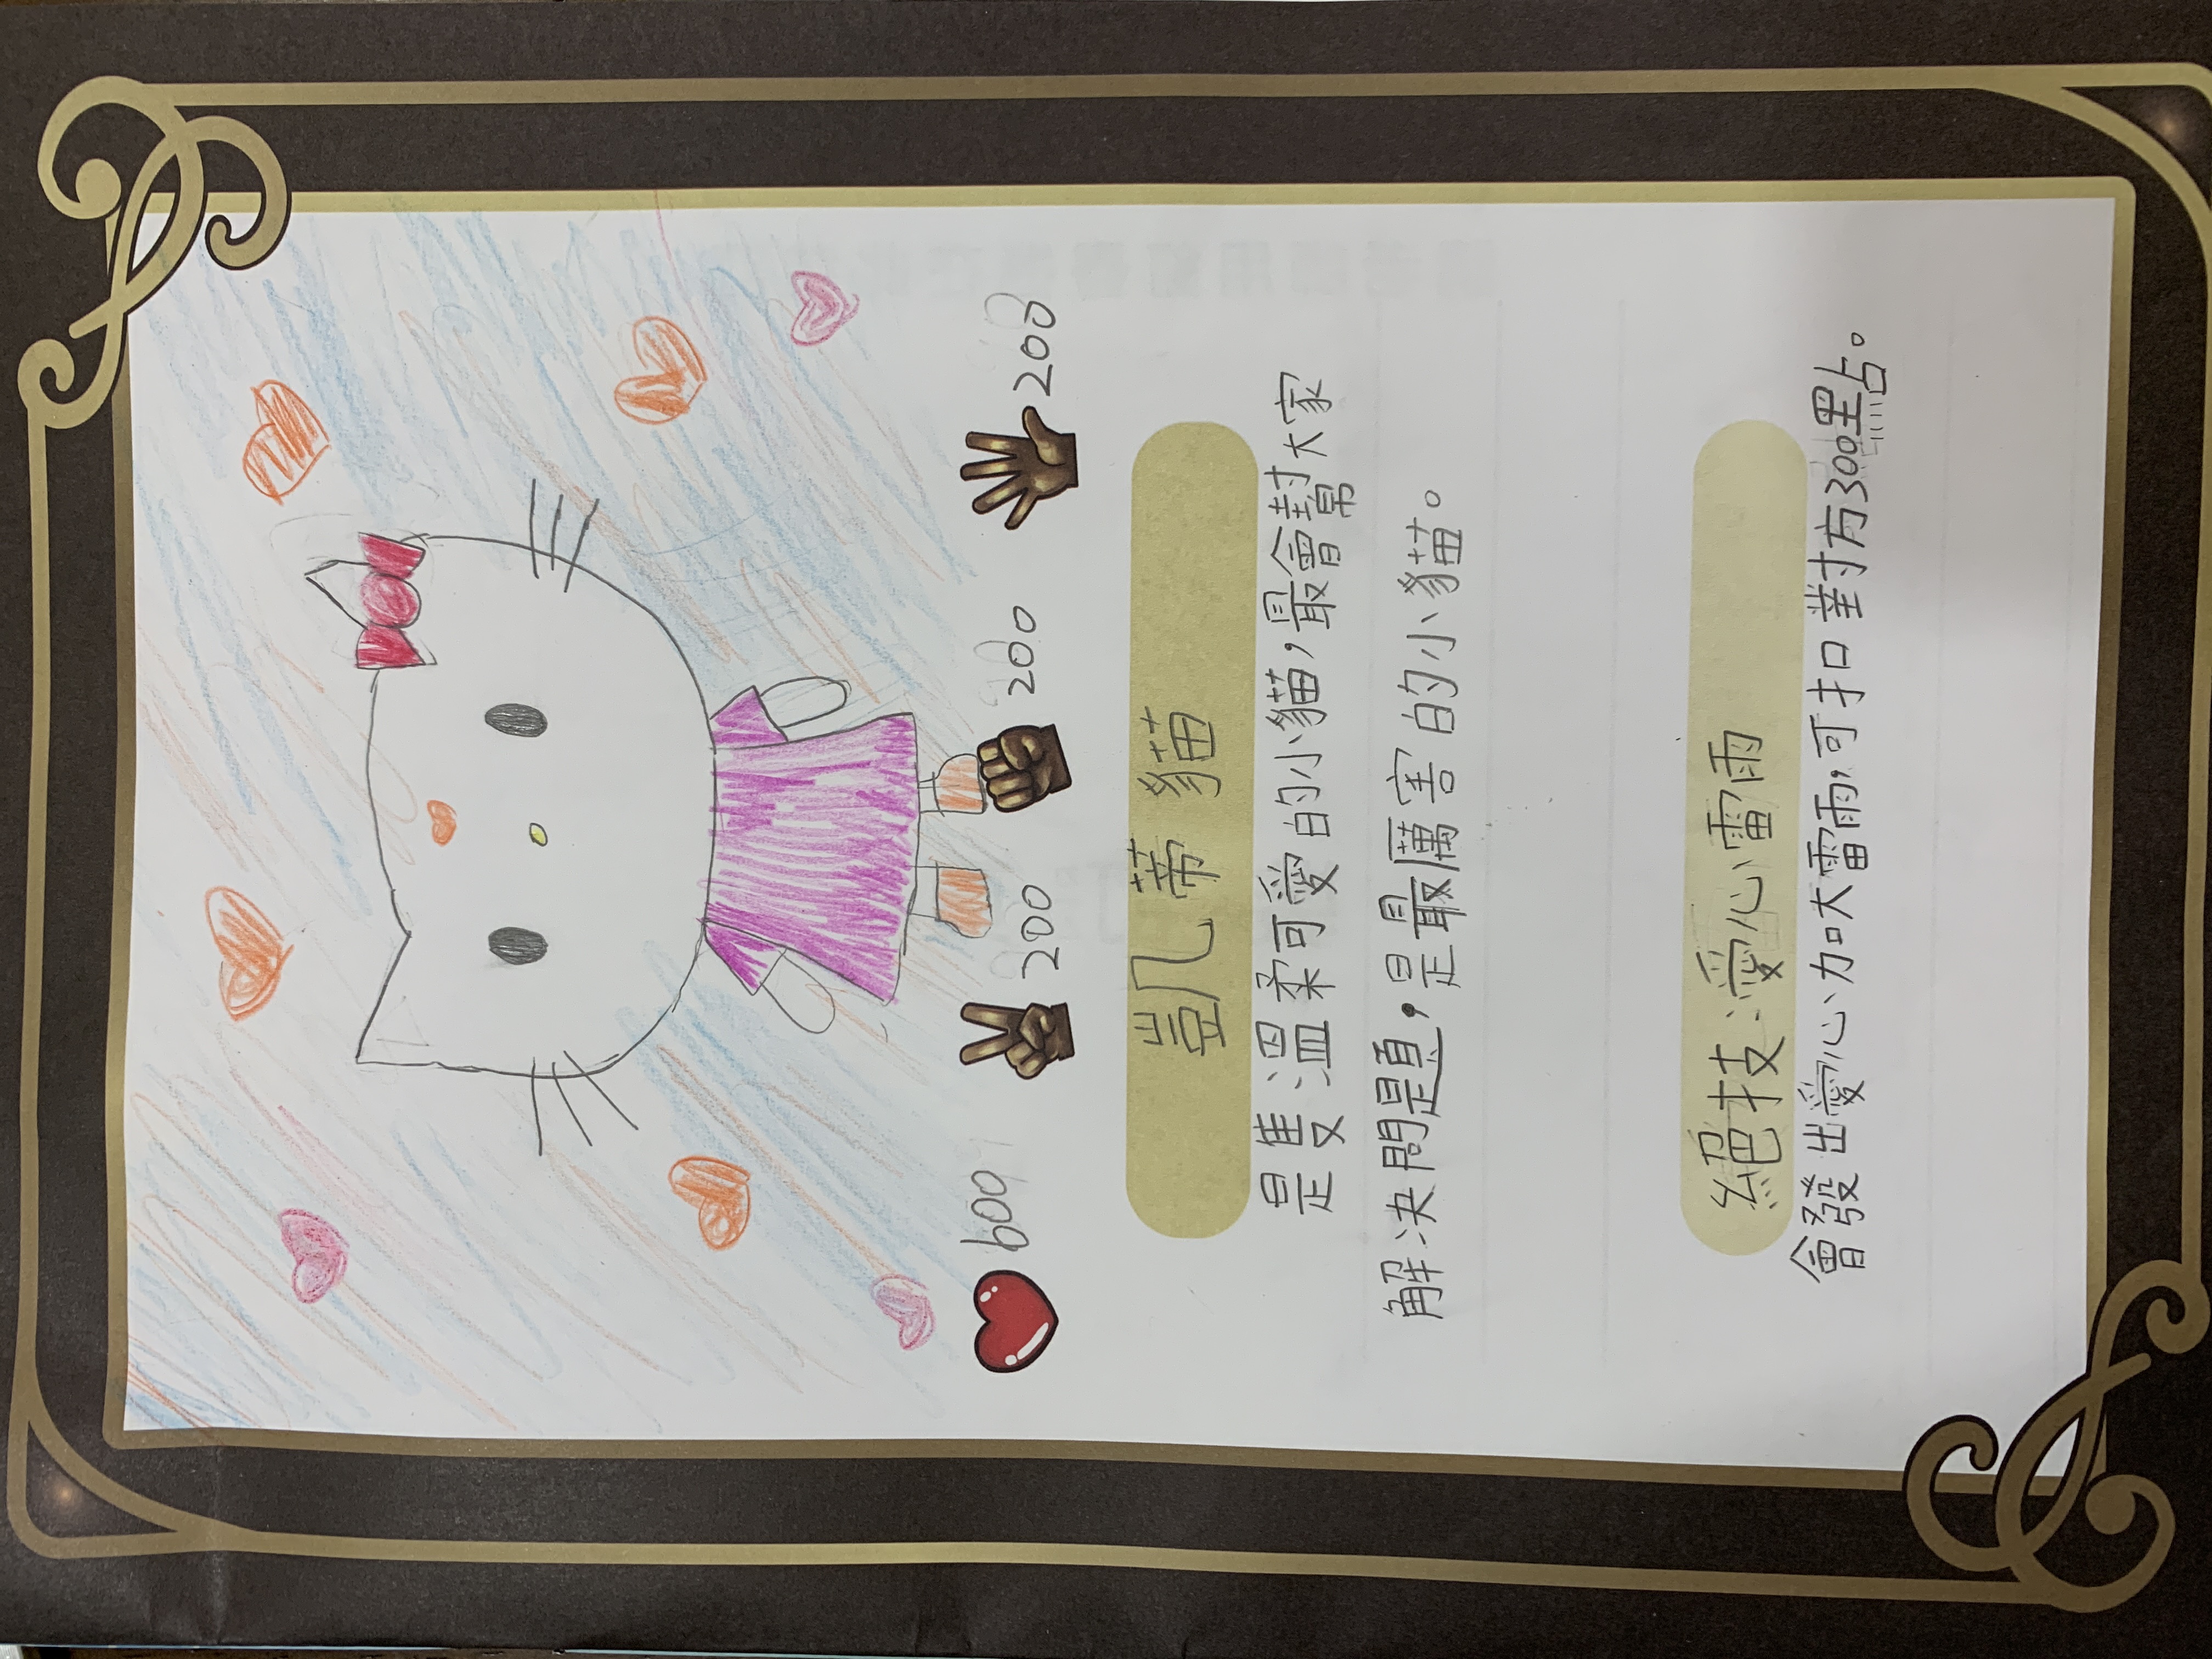 600 200 200 200
凱蒂貓
是隻溫柔可愛的小貓,最會幫大家
解決問題,是最厲害的小貓。
絕技:愛心雷雨
會發出愛心加大雷雨,可扣對方300點。